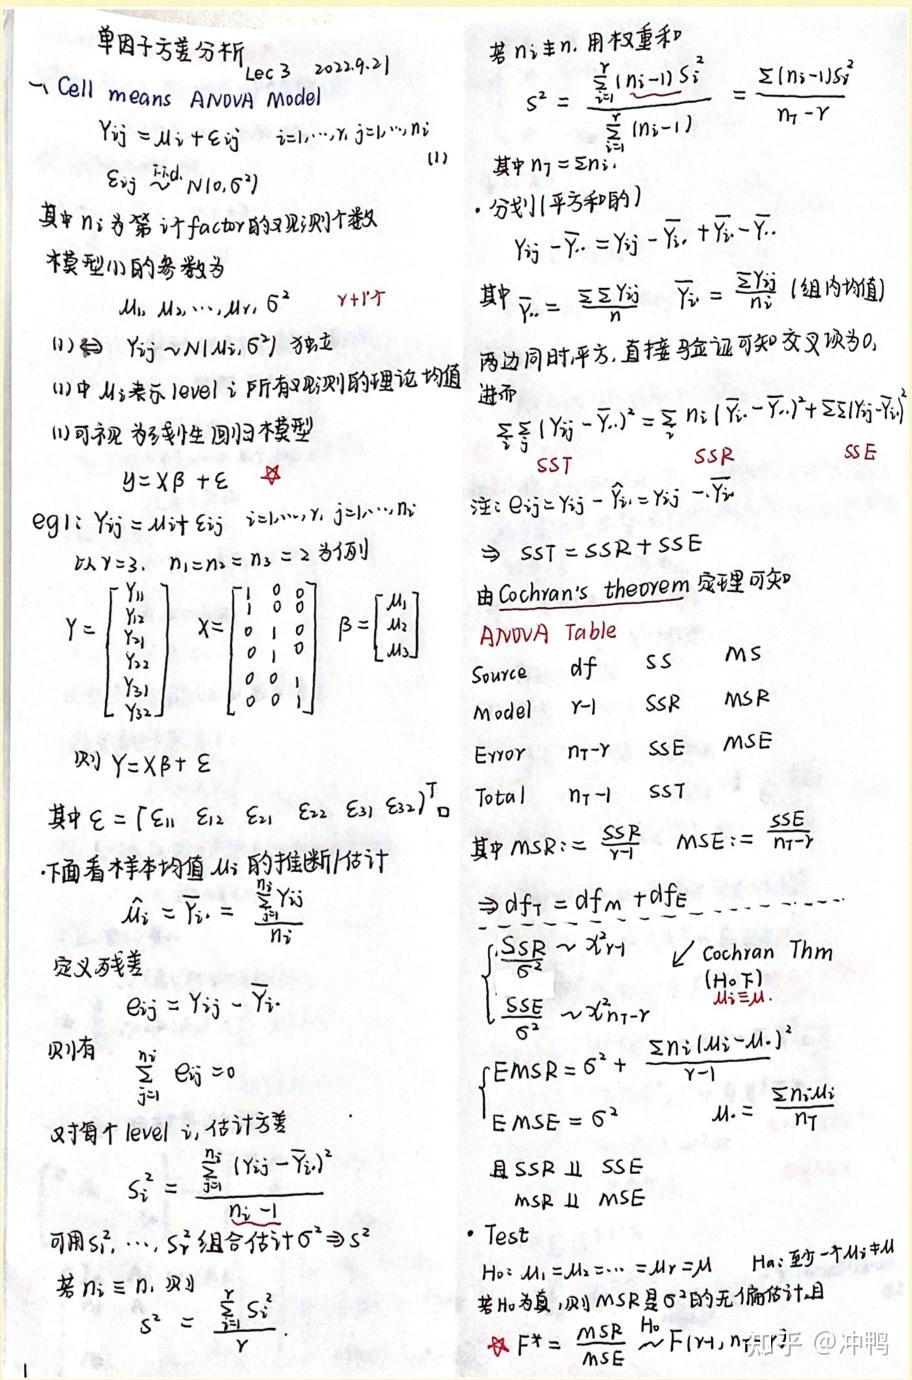 单因子方差分析
Lec 3 2022.9.21
一、Cell means ANOVA Model
Yij = μi + εij i=1,…,r, j=1,…,ni
(1)
εij i.i.d. ~ N(0,σ²)
其中 ni 为第 i 个 factor 的观测个数
模型(1)的参数为
μ1, μ2, …, μr, σ² r+1个
(1) ⇔ Yij ~ N(μi, σ²) 独立
(1)中 μi 表示 level i 所有观测的理论均值
(1)可视为线性回归模型
y = Xβ + ε ☆
eg1: Yij = μi + εij i=1,…,r, j=1,…,ni
以 r=3. n1=n2=n3=2 为例
Y = [Y11 Y12 Y21 Y22 Y31 Y32] X = [1 0 0; 1 0 0; 0 1 0; 0 1 0; 0 0 1; 0 0 1] β = [μ1 μ2 μ3]
则 Y = Xβ + ε
其中 ε = [ε11 ε12 ε21 ε22 ε31 ε32)ᵀ □
·下面看样本均值 μi 的推断/估计
μ̂i = Ȳi· = Σ_{j=1}^{ni} Yij / ni
定义残差
eij = Yij − Ȳi·
则有
Σ_{j=1}^{ni} eij = 0
对每个 level i, 估计方差
Si² = Σ_{j=1}^{ni} (Yij − Ȳi·)² / (ni − 1)
可用 S1², …, Sr² 组合估计 σ² ⇒ S²
若 ni ≡ n, 则
S² = Σ_{i=1}^{r} Si² / r .
1
若 ni ≢ n, 用权重和
S² = Σ_{i=1}^{r} (ni−1) Si² / Σ_{i=1}^{r} (ni−1) = Σ(ni−1)Si² / (nT − r)
其中 nT = Σni.
· 分划(平方和的)
Yij − Ȳ·· = Yij − Ȳi· + Ȳi· − Ȳ··
其中 Ȳ·· = ΣΣYij / n Ȳi· = ΣYij / ni (组内均值)
两边同时平方, 直接验证可知交叉项为0,
进而
Σi Σj (Yij − Ȳ··)² = Σi ni (Ȳi· − Ȳ··)² + ΣΣ(Yij − Ȳi·)²
SST SSR SSE
注: eij = Yij − Ŷi· = Yij − Ȳi·
⇒ SST = SSR + SSE
由 Cochran's theorem 定理可知
ANOVA Table
Source df SS MS
Model r−1 SSR MSR
Error nT−r SSE MSE
Total nT−1 SST
其中 MSR := SSR / (r−1) MSE := SSE / (nT−r)
⇒ dfT = dfM + dfE
SSR/σ² ~ χ²r−1 ↙ Cochran Thm
(H0下)
μi ≡ μ.
SSE/σ² ~ χ²nT−r
EMSR = σ² + Σni(μi − μ·)² / (r−1)
EMSE = σ² μ· = Σniμi / nT
且 SSR ⫫ SSE
MSR ⫫ MSE
· Test
H0: μ1 = μ2 = … = μr = μ Ha: 至少一个 μi ≠ μ
若 H0 为真, 则 MSR 是 σ² 的无偏估计, 且
☆ F* = MSR / MSE H0 ~ F(r−1, nT−r).
知乎 @冲鸭